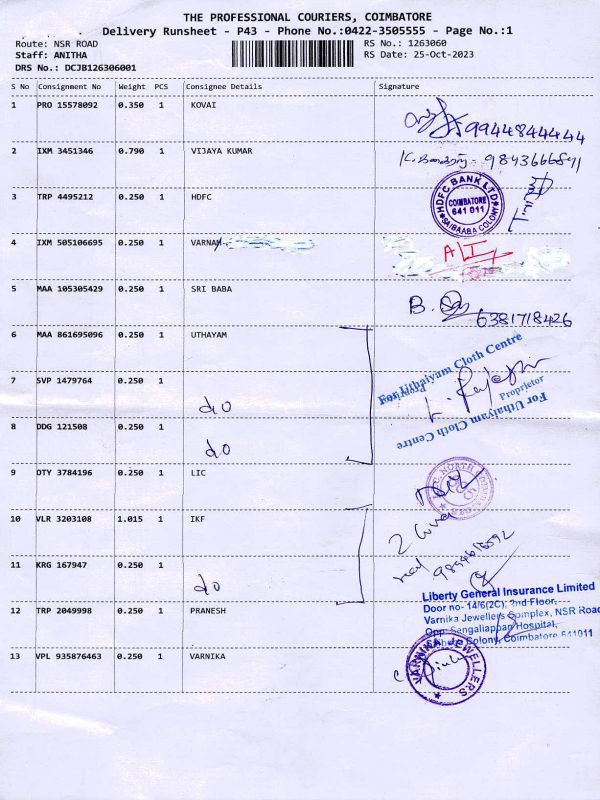 THE PROFESSIONAL COURIERS, COIMBATORE
Delivery Runsheet - P43 - Phone No.:0422-3505555 - Page No.:1
Route: NSR ROAD RS No.: 1263060
Staff: ANITHA RS Date: 25-Oct-2023
DRS No.: DCJB126306001
S No Consignment No Weight PCS Consignee Details Signature
1 PRO 15578092 0.350 1 KOVAI
9944844444
2 IXM 3451346 0.790 1 VIJAYA KUMAR
3 TRP 4495212 0.250 1 HDFC
HDFC BANK LTD
COIMBATORE
641 011
SAIBAABA COLONY
4 IXM 505106695 0.250 1 VARNAM
5 MAA 105305429 0.250 1 SRI BABA
B. 6381718426
6 MAA 861695096 0.250 1 UTHAYAM
For Uthaiyam Cloth Centre
7 SVP 1479764 0.250 1 do
Proprietor
For Uthaiyam Cloth Centre
8 DDG 121508 0.250 1 do
9 DTY 3784196 0.250 1 LIC
10 VLR 3203108 1.015 1 IKF
11 KRG 167947 0.250 1 do
Liberty General Insurance Limited
Door no- 14/6(2C), 2nd Floor,
12 TRP 2049998 0.250 1 PRANESH
Varnika Jewellers Complex, NSR Road
Opp: Sengaliappan Hospital,
Colony, Coimbatore 641011
13 VPL 935876463 0.250 1 VARNIKA
VARNIKA JEWELLERS